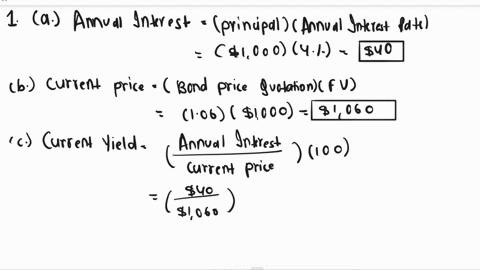 1. (a.) Annual Interest = (principal)(Annual Interest Rate)
= ($1,000)(4%) = $40
(b.) Current price = (Bond price quotation)(FV)
= (1.06)($1,000) = $1,060
(c.) Current Yield = (Annual Interest / current price)(100)
= ($40 / $1,060)